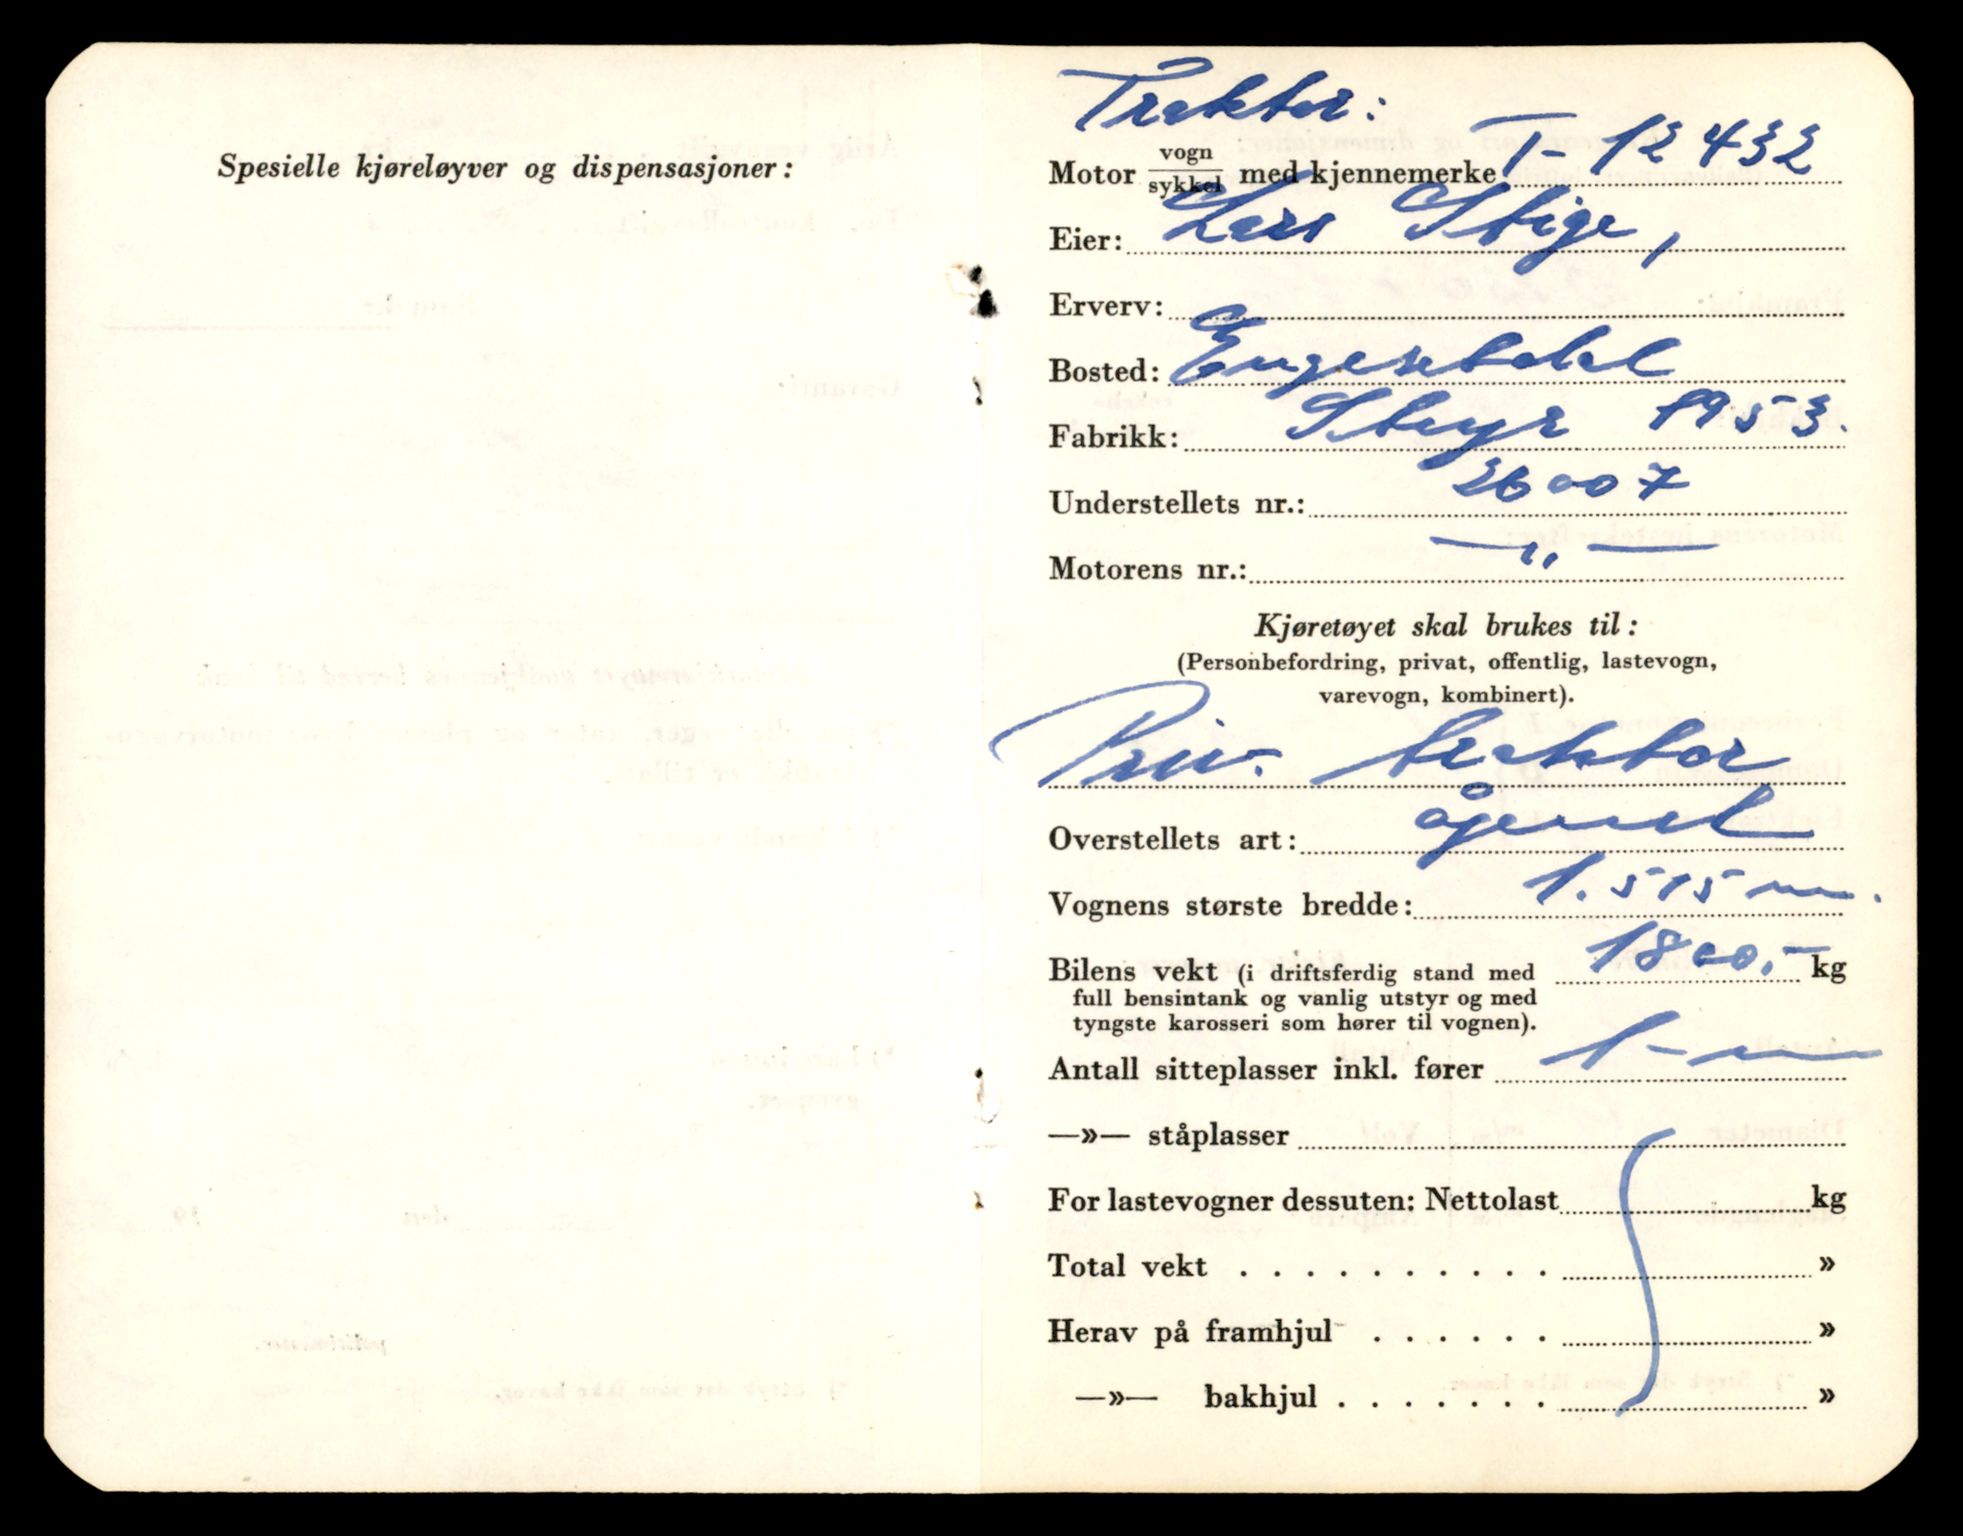 Spesielle kjøreløyver og dispensasjoner:
Traktor:
Motor vogn/sykkel med kjennemerke T- 12432
Eier: Lars Stige,
Erverv:
Bosted: Engesetdal
Fabrikk: Steyr 1953.
Understellets nr.: 26007
Motorens nr.: —"—
Kjøretøyet skal brukes til:
(Personbefordring, privat, offentlig, lastevogn,
varevogn, kombinert).
Priv. traktor
Overstellets art: åpent
Vognens største bredde: 1.515 m.
Bilens vekt (i driftsferdig stand med 1800,- kg
full bensintank og vanlig utstyr og med
tyngste karosseri som hører til vognen).
Antall sitteplasser inkl. fører 1 -
—»— ståplasser
For lastevogner dessuten: Nettolast kg
Total vekt . . . . . . . . . . »
Herav på framhjul . . . . . . »
—»— bakhjul . . . . . . . »